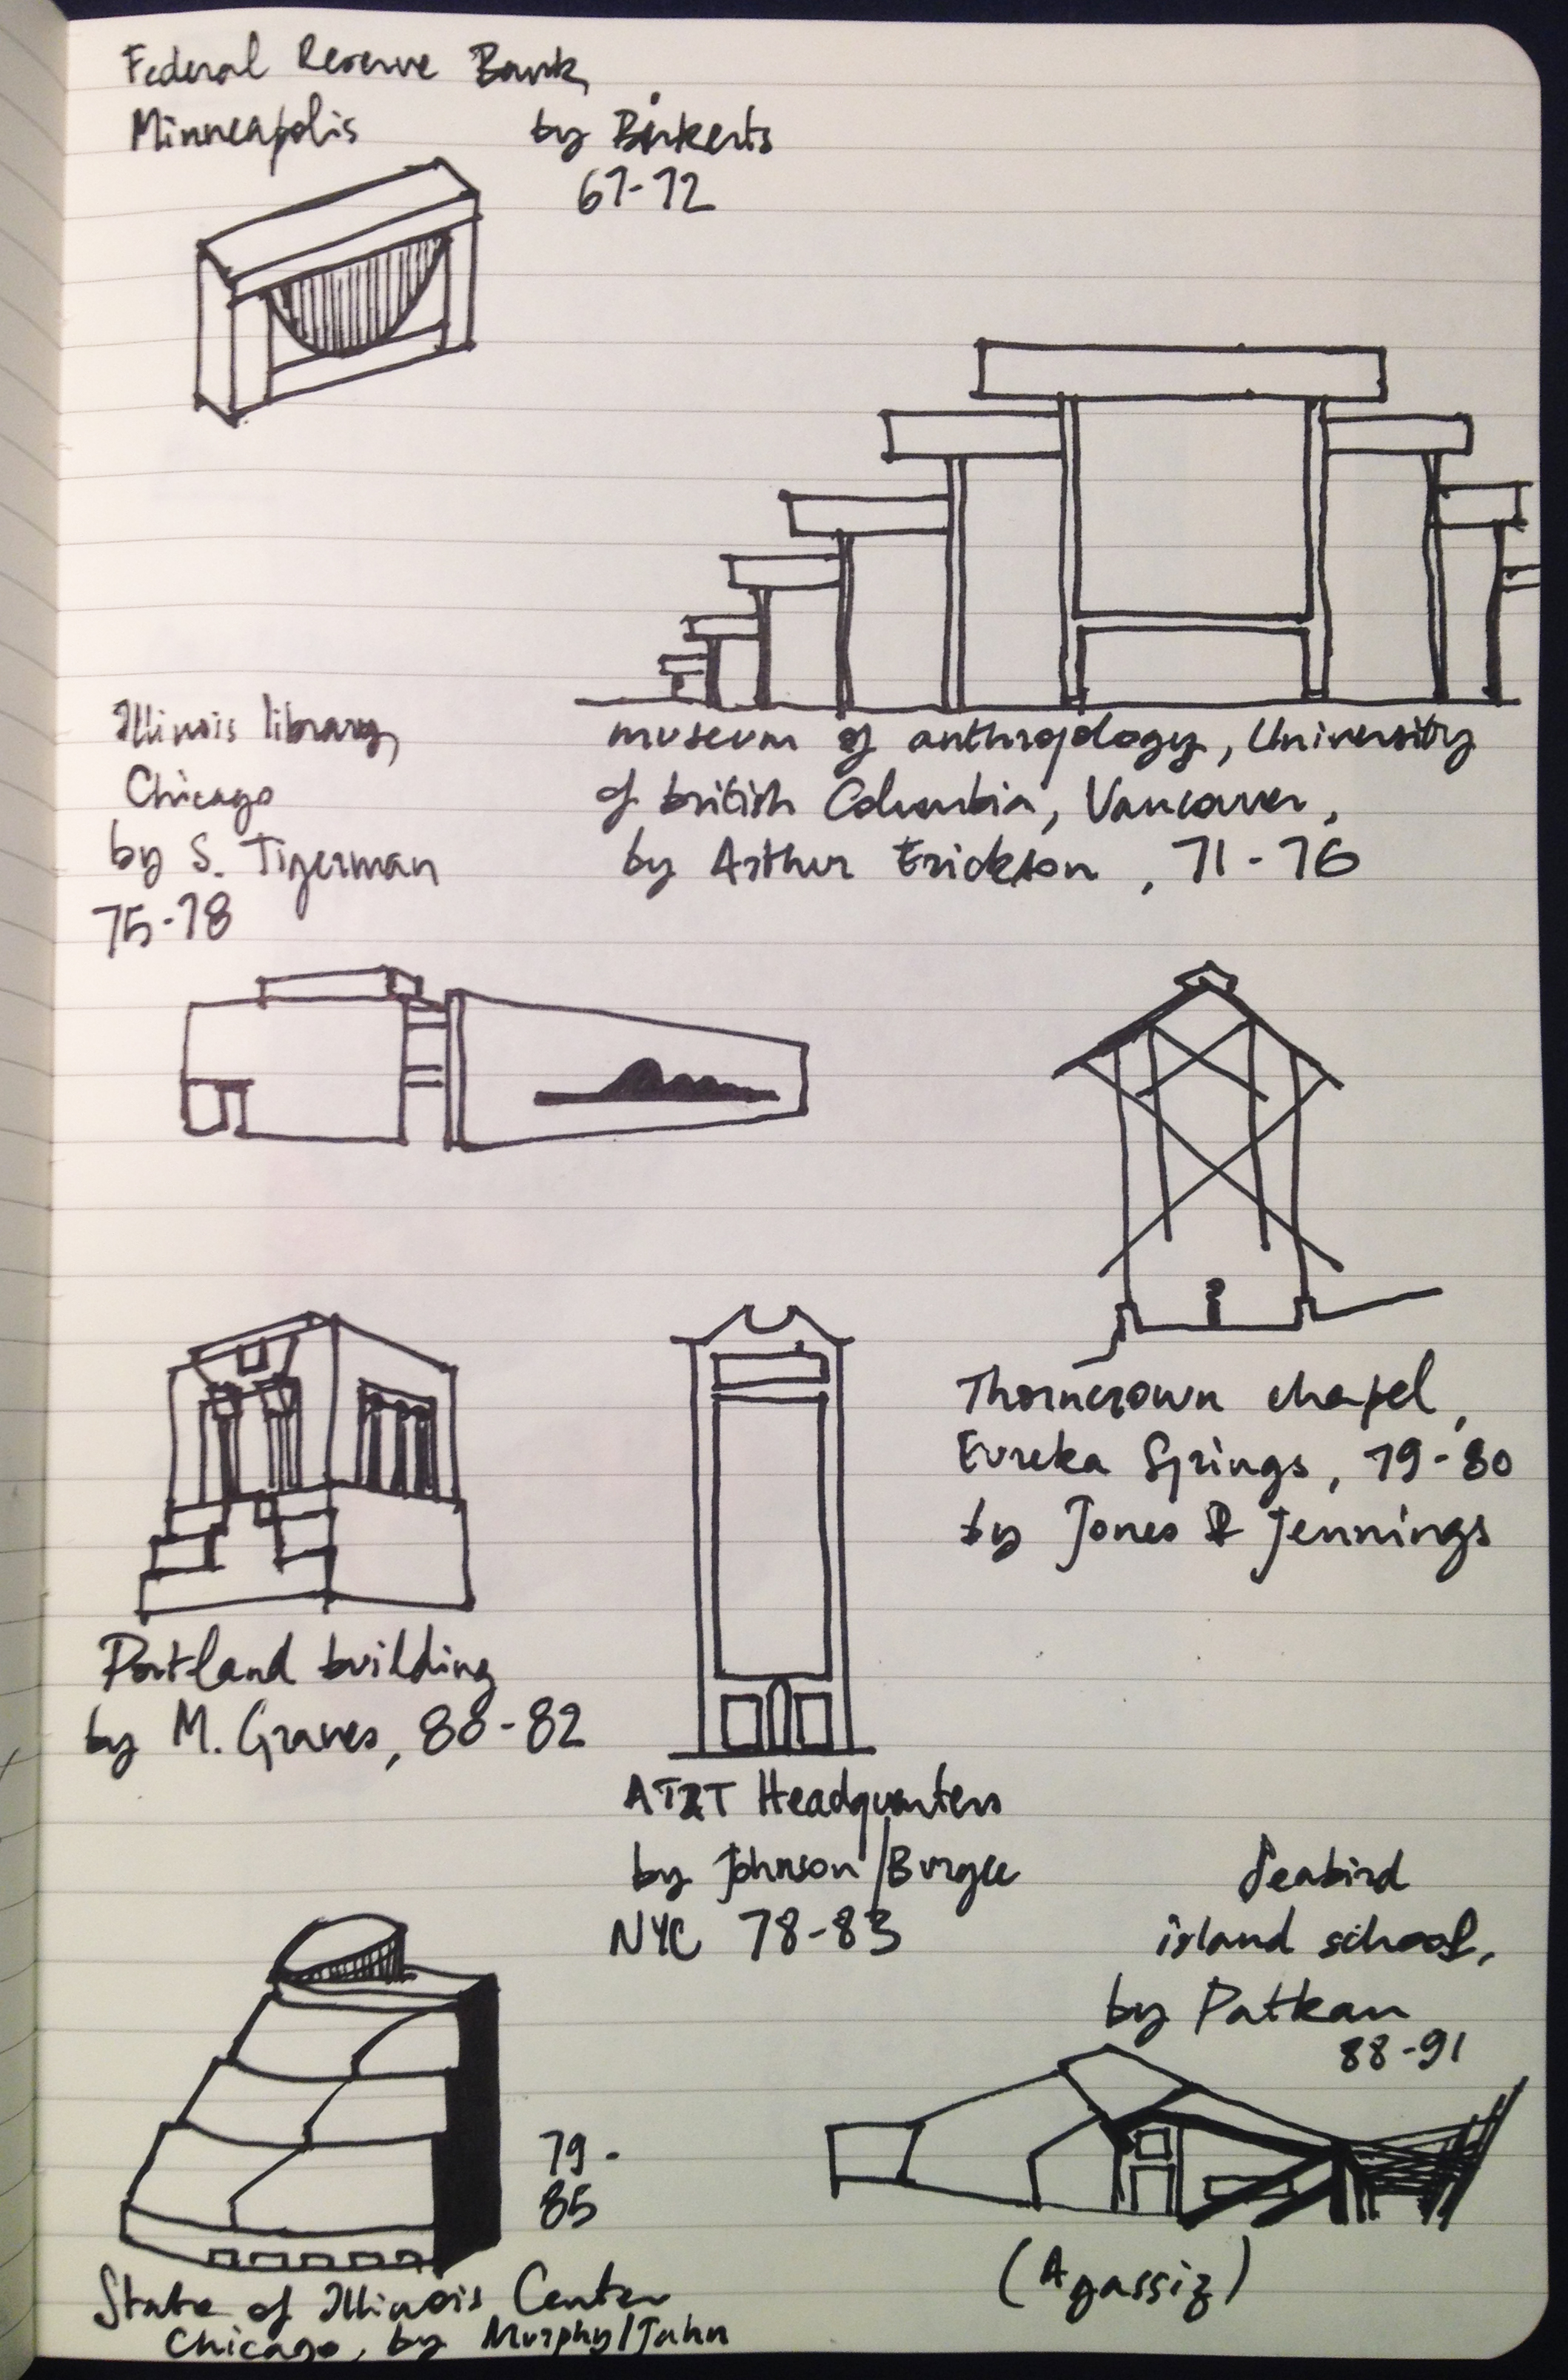 Federal Reserve Bank,
Minneapolis by Birkerts
67-72
museum of anthropology, University
of british Columbia, Vancouver,
by Arthur Erickson, 71-76
Illinois library,
Chicago
by S. Tigerman
75-78
Thorncrown chapel,
Eureka Springs, 79-80
by Jones & Jennings
Portland building
by M. Graves, 80-82
AT&T Headquarters
by Johnson/Burgee
NYC 78-83
Seabird
island school,
by Patkau
88-91
(Agassiz)
79-
85
State of Illinois Center
Chicago, by Murphy/Jahn